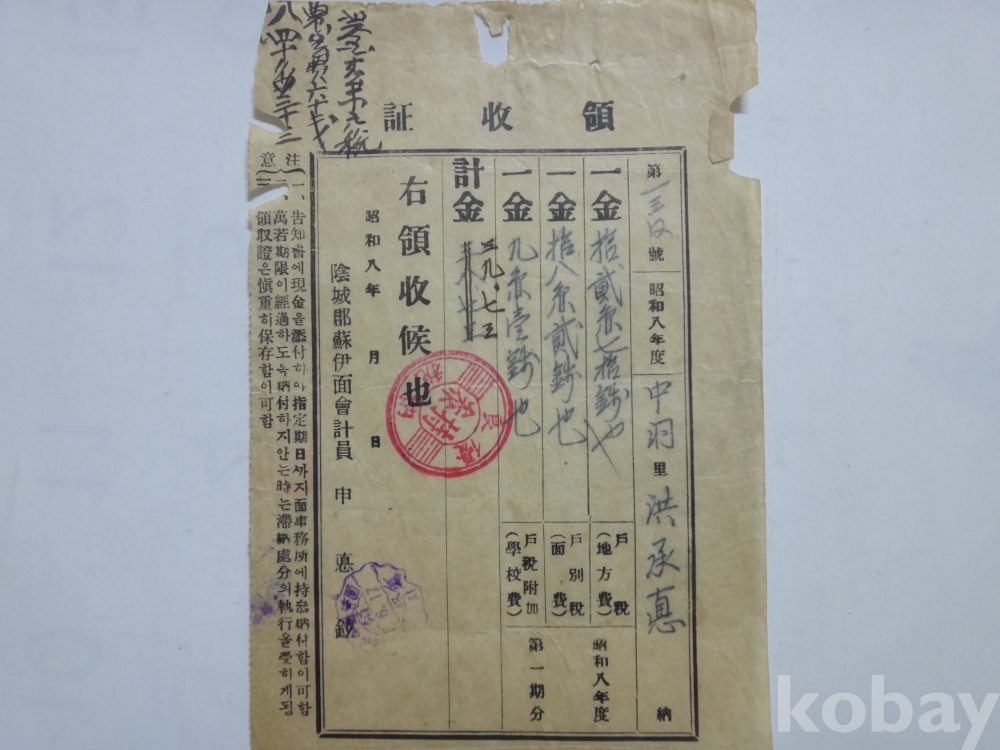 領收証
第 號 昭和八年度 中羽里 洪承悳 納
一金 拾貳円七拾錢也 戶稅(地方費) 昭和八年度
一金 拾八円貳錢也 戶別稅(面費)
一金 九円壹錢也 戶稅附加(學校費) 第一期分
計金 三九.七三
右領收候也
昭和八年 月 日
陰城郡蘇伊面會計員 申 悳
注意
一、告知書에現金을添付하야指定期日까지面事務所에持參納付함이可함
一、萬若期限이經過하도록納付하지안는時는滯納處分의執行을受하게됨
領収證은愼重히保存함이可함
kobay